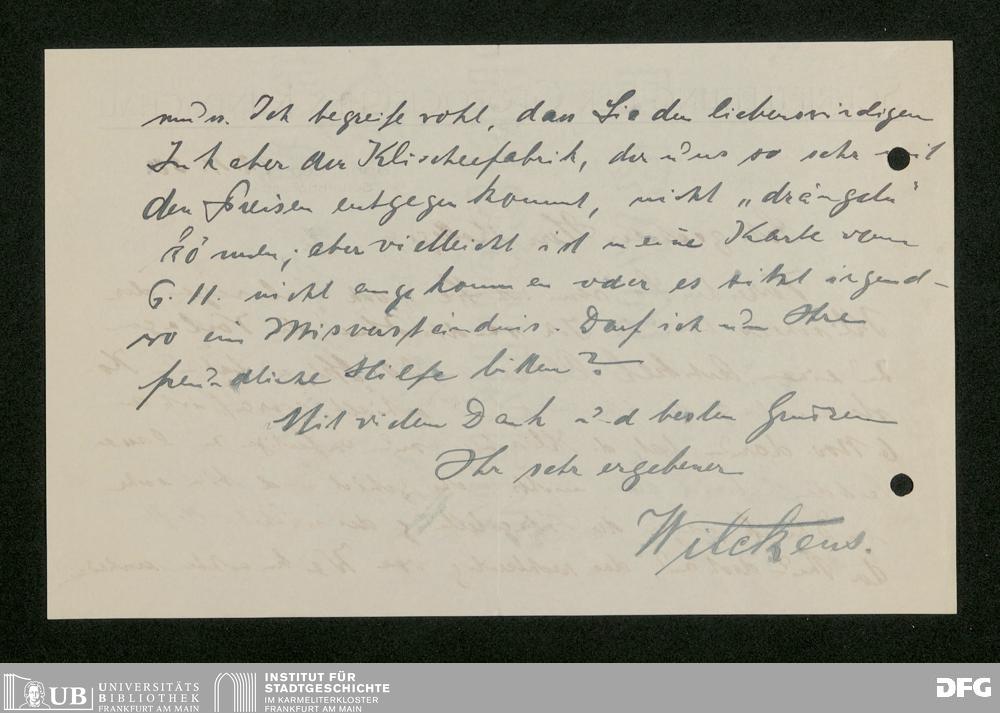 muss. Ich begreife wohl, dass Sie den liebenswürdigen
Inhaber der Klischeefabrik, der uns so sehr mit
den Preisen entgegenkommt, nicht „drängeln"
können; aber vielleicht ist meine Karte vom
6. 11. nicht angekommen oder es sitzt irgend-
wo ein Misverständnis. Darf ich um Ihre
freundliche Hilfe bitten?
Mit vielem Dank und besten Grüssen
Ihr sehr ergebener
Wilckens.
UB UNIVERSITÄTS
BIBLIOTHEK
FRANKFURT AM MAIN
INSTITUT FÜR
STADTGESCHICHTE
IM KARMELITERKLOSTER
FRANKFURT AM MAIN
DFG